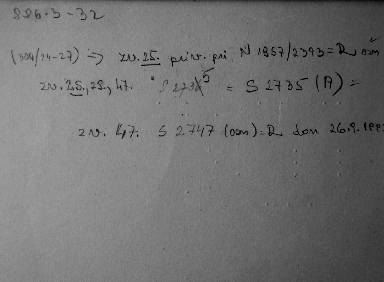 226.3-32
(304/24-27) => zv. 25. priv. pri N 1857/2393 = D
zv. 25., 28., 47. " S 2735 = S 2735 (A) =
zv. 47. S 2747 (osn) = D dan 26.9.199